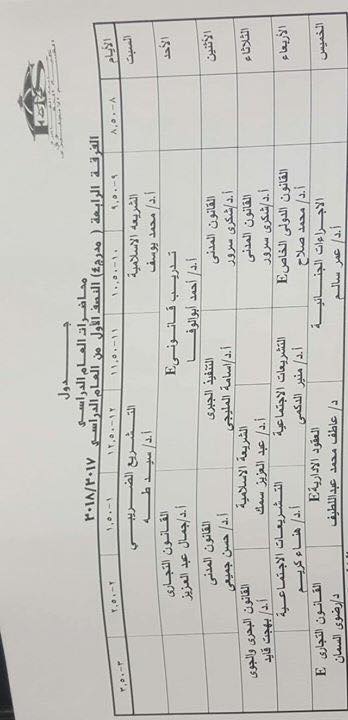 جدول
محاضرات العام الدراسي
الفرقة الرابعة ( مدرج٤) النصف الأول من العام الدراسي ٢٠١٨/٢٠١٧
الأيام ٨-٨,٥٠ ٩-٩,٥٠ ١٠-١٠,٥٠ ١١-١١,٥٠ ١٢-١٢,٥٠ ١-١,٥٠ ٢-٢,٥٠ ٣-٣,٥٠
السبت
الشريعة الاسلامية
أ.د/ محمد يوسف
التشريع الضريبي
أ.د/ سيد طه
الأحد
تدريب قانونى E
أ.د/ أحمد ابوالوفا
القانون التجارى
أ.د/جمال عبد العزيز
الأثنين
القانون المدنى
أ.د/شكرى سرور
التنفيذ الجبرى
أ.د/أسامة المليجي
القانون المدنى
أ.د/ حسن جميعي
الثلاثاء
القانون المدنى
أ.د/شكرى سرور
الشريعة الاسلامية
أ.د/ عبد العزيز سمك
القانون البحرى والجوى
أ.د/ بهجت قايد
الأربعاء
القانون الدولى الخاص E
أ.د/ محمد صلاح
التشريعات الاجتماعية
أ.د/ منير الدكمى
التشريعات الاجتماعية
أ.د/ هناء كريم
الخميس
الاجراءات الجنائية
أ.د/ عمر سالم
العقود الادارية E
د/ عاطف محمد عبداللطيف
القانون التجارى E
د/رضوى السمان